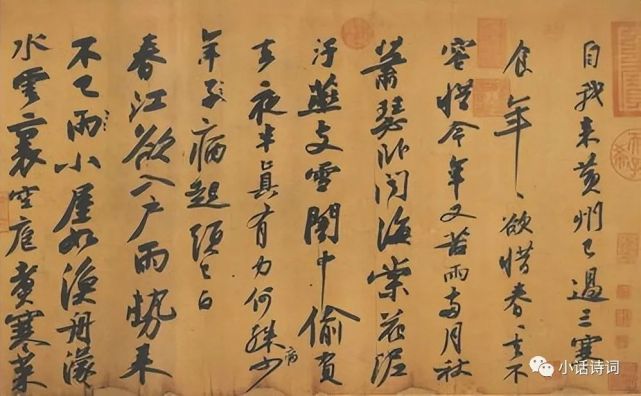 自我来黄州已過三寒
食年〻欲惜春〻去不
容惜今年又苦雨兩月秋
蕭瑟卧聞海棠花泥
汙燕支雪闇中偷負
去夜半真有力何殊病少
年子病起頭已白
春江欲入户雨勢来
不已雨小屋如漁舟濛
水雲裏空庖煮寒菜
小话诗词